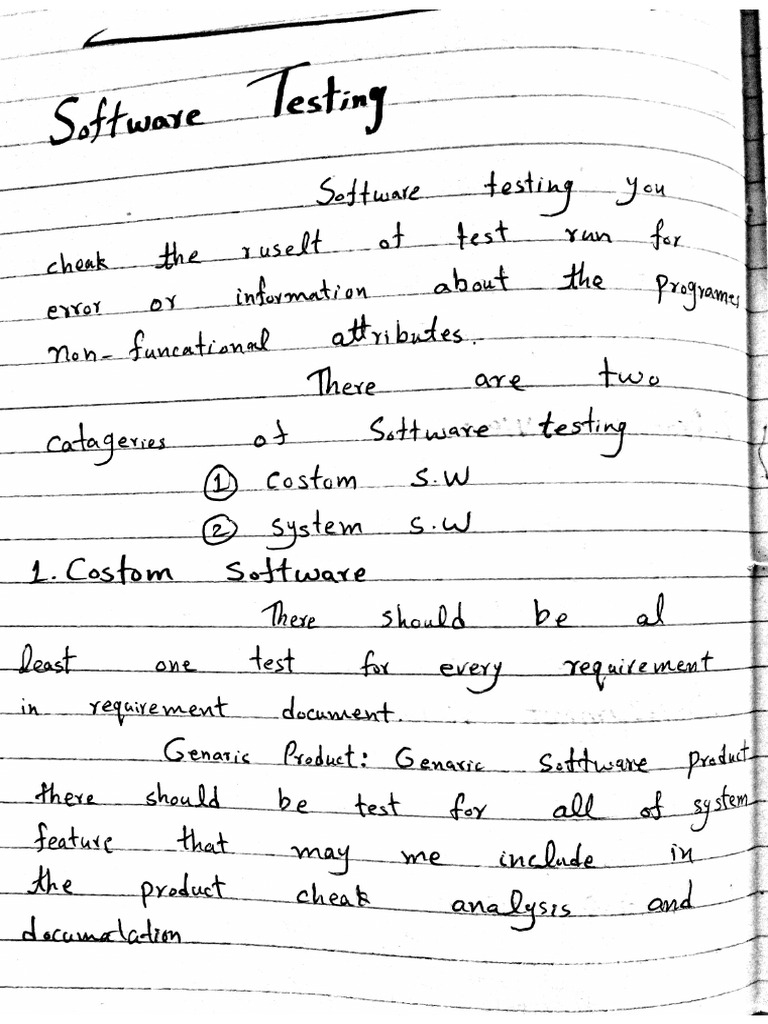 Software Testing
Software testing you
cheak the ruselt of test run for
error or information about the programes
non-funcational attributes.
There are two
catageries of Software testing
① costom S.W
② system S.W
1. Costom Software
There should be al
least one test for every requirement
in requirement document.
Genaric Product: Genaric Software product
there should be test for all of system
feature that may me include in
the product cheak analysis and
documatation